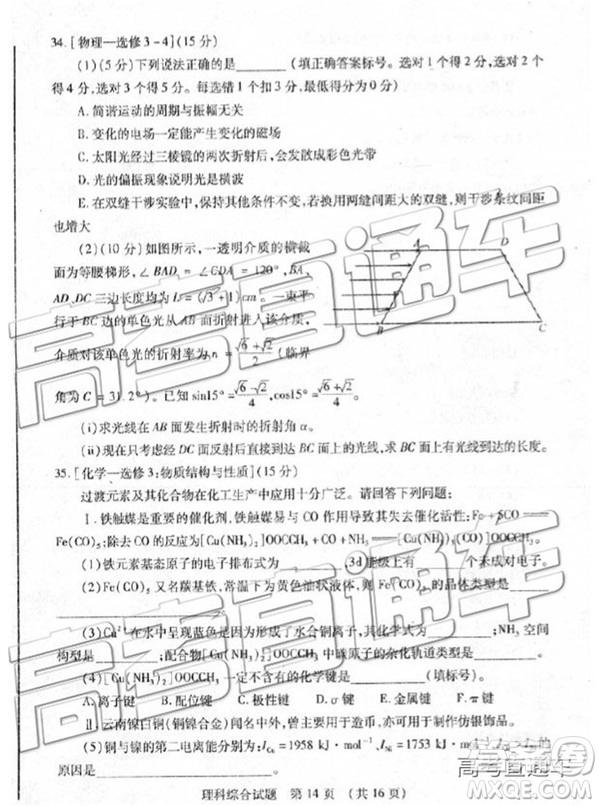 34.[物理—选修3-4](15分)
(1)(5分)下列说法正确的是________(填正确答案标号。选对1个得2分,选对2个
得4分,选对3个得5分。每选错1个扣3分,最低得分为0分)
A.简谐运动的周期与振幅无关
B.变化的电场一定能产生变化的磁场
C.太阳光经过三棱镜的两次折射后形成彩色光带
D.光的偏振现象说明光是横波
E.在双缝干涉实验中,保持其他条件不变,若换用两缝间距大的双缝,则干涉条纹间距
也增大
(2)(10分)如图所示,一透明介质的横截
面为等腰梯形,∠BAD=∠CDA=120°,BA、
AD、DC三边长度均为L=(√3+1)cm。一束平
行于BC边的单色光从AB面折射进入介质,
介质对该单色光的折射率为(√6+√2)/2(临界
角为C=31.2°)。已知sin15°=(√6-√2)/4,cos15°=(√6+√2)/4
A
D
B
C
(i)求光线在AB面发生折射时的折射角α。
(ii)现在只考虑折射后直接到达BC面上的光线,求BC面上有光射出部分的长度。
35.[化学—选修3:物质结构与性质](15分)
过渡元素及其化合物在化工生产中应用十分广泛。请回答下列问题:
Ⅰ.铁触媒是重要的催化剂,铁触媒易与CO作用导致其失去催化活性:Fe+5CO══
Fe(CO)₅;除去CO的反应为[Cu(NH₃)₂]OOCCH₃+CO+NH₃══[Cu(NH₃)₃(CO)]OOCCH₃。
(1)铁元素基态原子的电子排布式为________,3d能级上有________个未成对电子。
(2)Fe(CO)₅又名羰基铁,常温下为黄色油状液体,则Fe(CO)₅的晶体类型是________
(3)Cu²⁺在水中呈现蓝色是因为形成了水合铜离子________;NH₃空间
构型是________;配合物[Cu(NH₃)₂]OOCCH₃中碳原子的杂化轨道类型是________。
(4)[Cu(NH₃)₂]OOCCH₃不含有的化学键是________(填标号)。
A.离子键 B.极性键 C.非极性键 D.σ键 E.金属键 F.π键
Ⅱ.云南镍白铜(铜镍合金)闻名中外,曾主要用于造币,亦可用于制作仿银饰品。
(5)铜与镍的第二电离能分别为:I_Cu=1958 kJ·mol⁻¹、I_Ni=1753 kJ·mol⁻¹,I_Cu>I_Ni的
原因是________。
理科综合试题 第14页 (共16页)
高考直通车
高考直通车
高考直通车